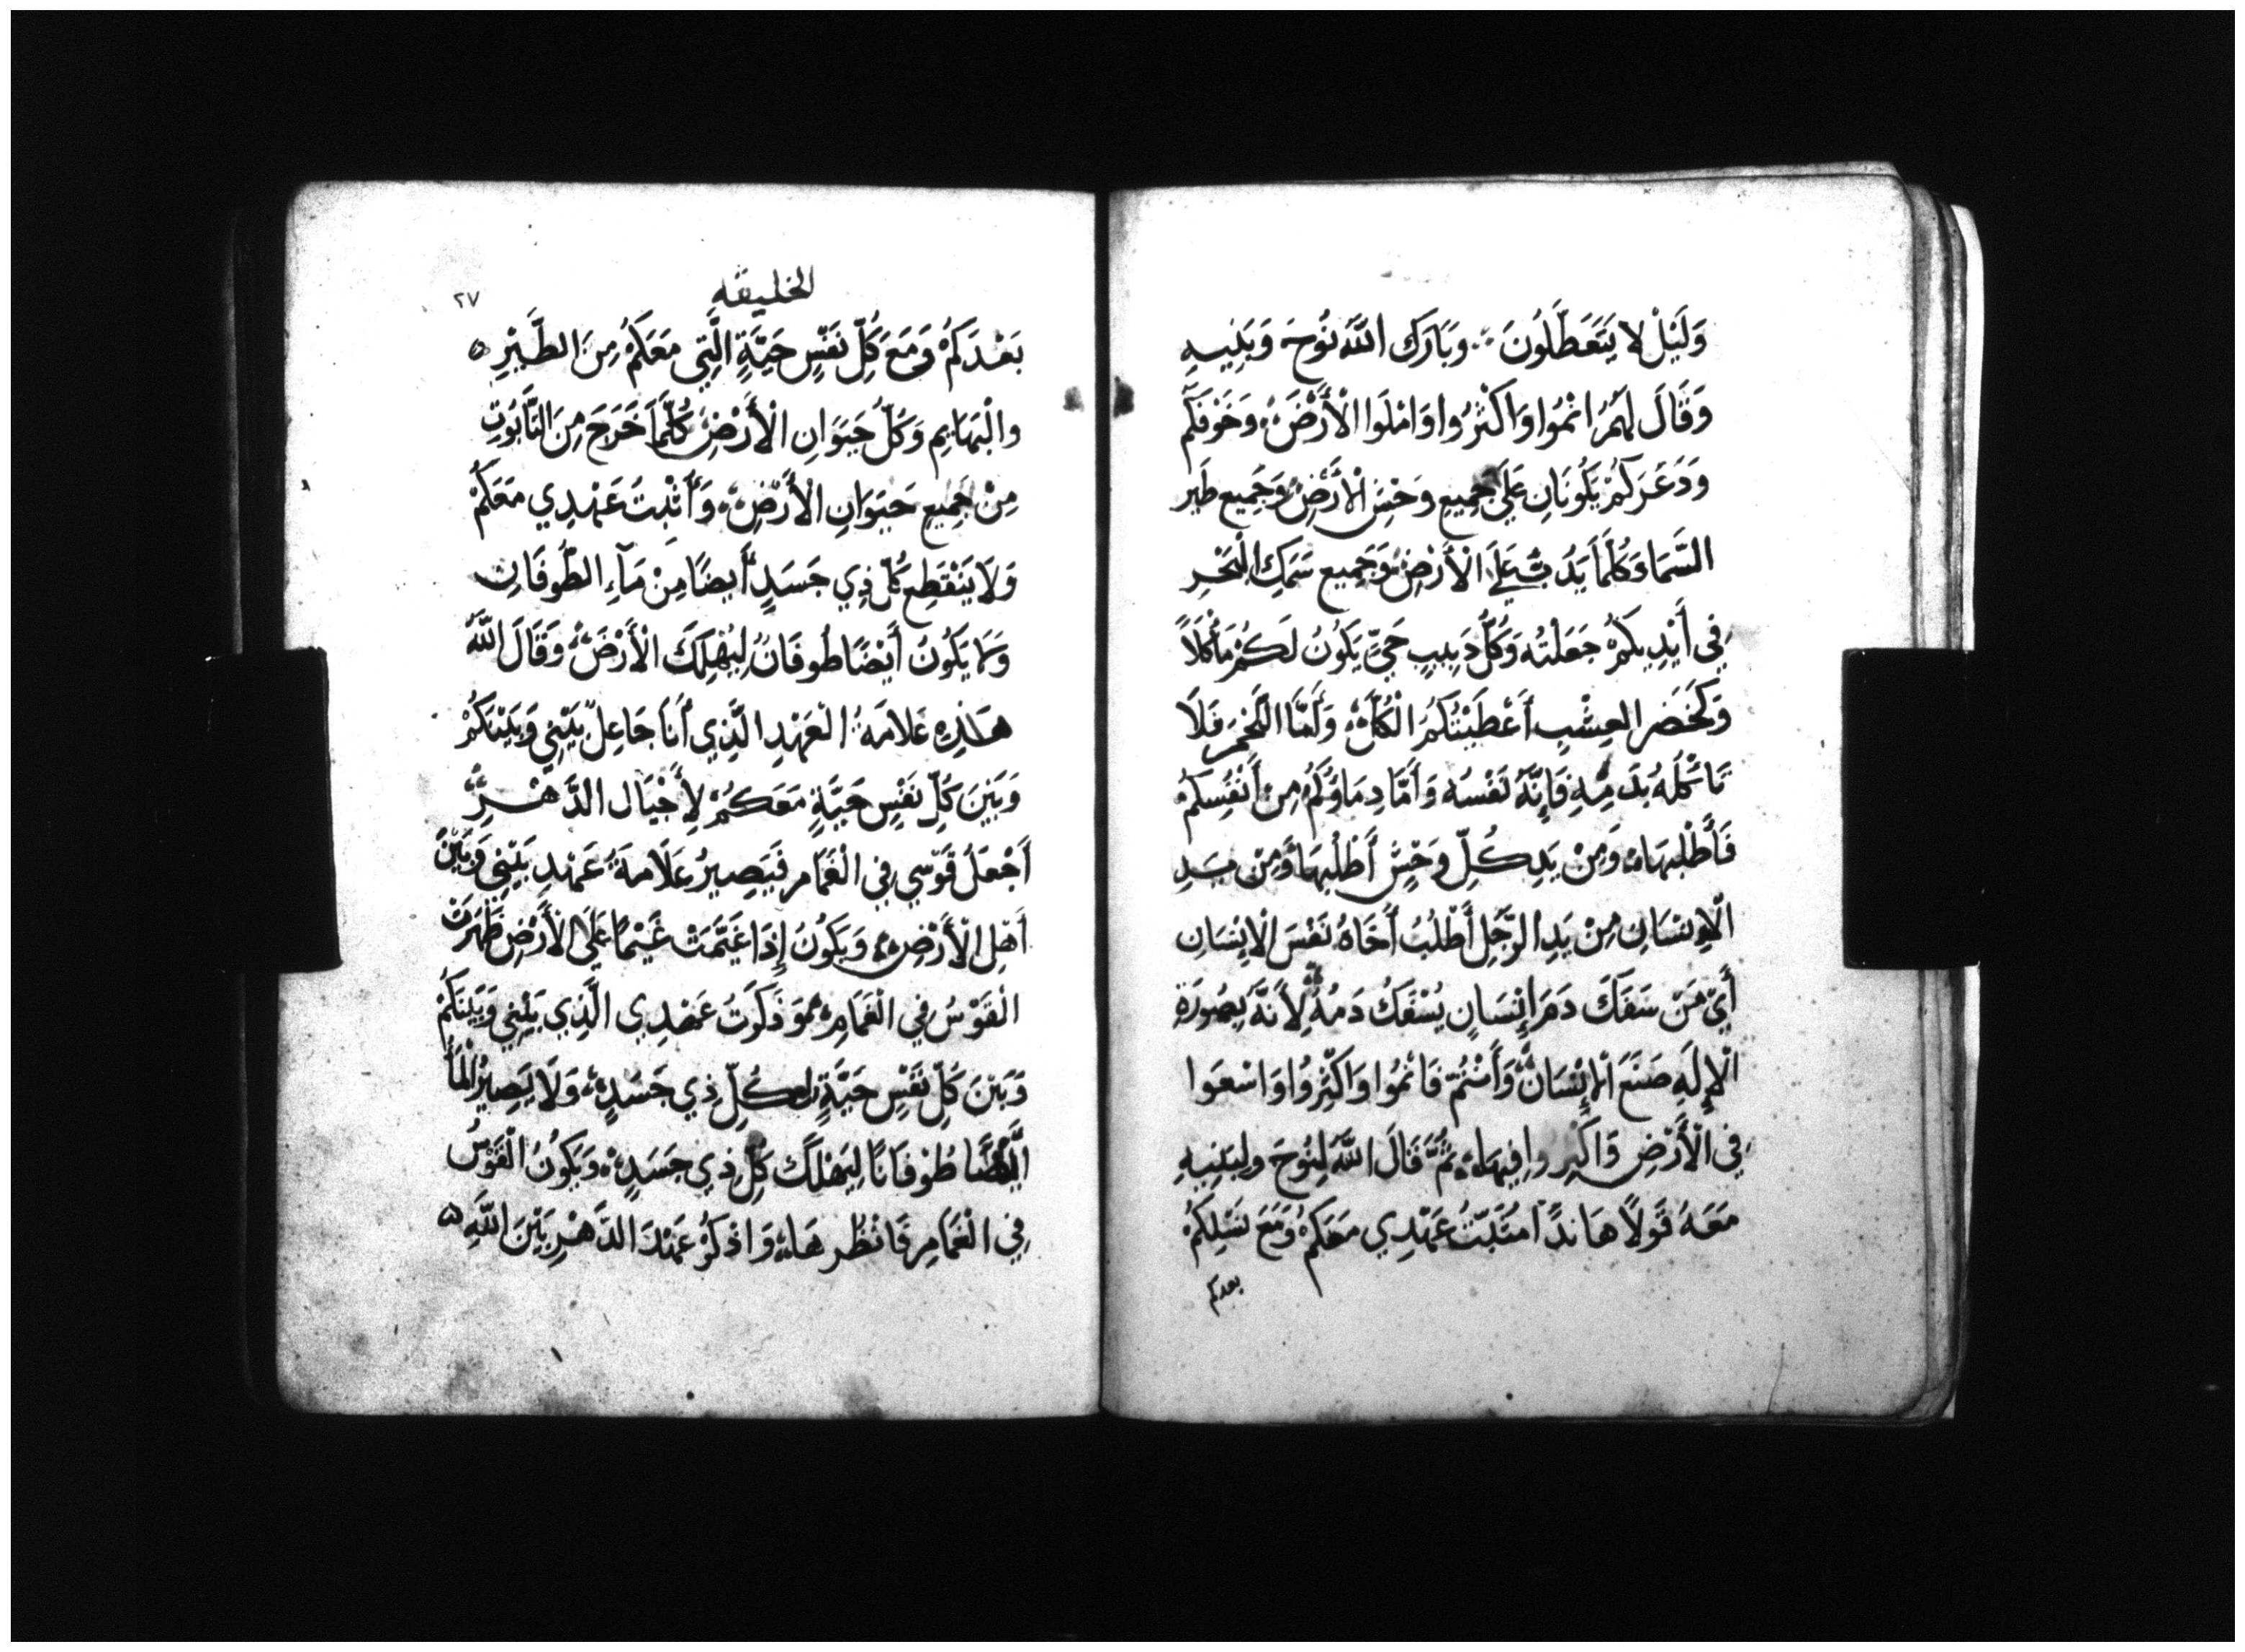 وَلَيْلْ لا يَتَعَطَّلُونَ ؞ وَبَارَكَ اللَّه نُوحَ وَبَنِيهِ
وَقَالَ لَهُمْ انْمُوا وَاكْثُرُوا وَامْلَوا الْأَرْضَ؞ وَخَوْفَكُم
وَدَعَرَكُمْ يَكُونَانِ عَلَى جَمِيعِ وَحْشِ الْأَرْضِ؞ وَجَمِيع طَير
السَّمَاءِ وَكُلَّمَا يَدُبُّ عَلَى الْأَرْضِ؞ وَجَمِيع سَمَكِ الْبَحْرِ
فِي أَيْدِيكُمْ جَعَلْتُه وَكُلُّ دَبِيبٍ حَيٍّ يَكُونُ لَكُمْ مَأْكَلاً
وَكَخَضَرِ العِشْبِ أَعْطَيْتُكُمُ الْكُلَّ؞ وَأَمَّا اللَّحْمَ فَلَا
تَأْكُلَهُ بِدَمِّهِ فَإِنَّهُ نَفْسُه وَأَمَّا دِمَاؤُكُمْ مِنْ أَنْفُسِكُمْ
فَأَطْلُبهَا؞ وَمِنْ يَدِ كُلِّ وَحْشٍ أَطْلُبهَا؞ وَمِنْ يَدِ
الْإِنْسَانِ مِنْ يَدِ الرَّجُلِ أَطْلُبُ أَخَاهُ نَفْسَ الْإِنْسَانِ
أَيّ مَنْ سَفَكَ دَمَ إِنْسَانٍ يُسْفَكُ دَمُهُ؞ لِأَنَّهُ بِصُورَةِ
الْإِلَهِ صَنَعَ الْإِنْسَانَ؞ وَأَنْتُمْ فَانْمُوا وَاكْثِرُوا وَاسْعَوا
فِي الْأَرْضِ وَاكْثِروا فِيهَا؞ ثُمَّ قَالَ اللَّه لِنُوحَ وَلِبَنِيهِ
مَعَهُ قَولاً هَانَدًا مُثَبِّتُ عَهْدِي مَعَكُمْ وَمَعَ نَسْلِكُمْ
بعدكم
الخليقه
٢٧
بَعْدَكُمْ وَمَعَ كُلِّ نَفْسٍ حَيَّةٍ الَّتِي مَعَكُمْ مِنَ الطَّيْرِ ه
والْبَهَايِم وَكُلِّ حَيَوَانِ الْأَرْضِ؞ كُلَّمَا خَرَجَ مِنَ التَّابُوتِ
مِنْ جَمِيعِ حَيَوَانِ الْأَرْضِ؞ وَأُثْبِتُ عَهْدِي مَعَكُمْ
وَلَا يَنْقَطِع كُلّ ذِي جَسَدٍ أَيضًا مِنْ مَآءِ الطُّوفَانِ
وَلَا يَكُونُ أَيْضًا طُوفَانُ لِيُهْلِكَ الْأَرْضَ؞ وَقَالَ اللَّه
هَذِهِ عَلامَةُ الْعَهْدِ الَّذِي أَنَا جَاعِلٌ بَيْنِي وَبَيْنَكُمْ
وَبَيْنَ كُلِّ نَفْسِ حَيَّةٍ مَعَكُمْ لِأَجْيَال الدَّهْرِ؞
أَجْعَلُ قَوْسِي فِي الْغَمَام فَيَصِيرُ عَلَامَةُ عَهْدِ بَيْنِي وَبَيْنَ
أَهْلِ الْأَرْضِ؞ وَيَكُونُ إِذَا غَيَّمَتْ غَيْمًا عَلَى الْأَرْضِ ظَهَرَتْ
الْقَوْسُ فِي الْغَمَامِ؞ وَذَكَرْتُ عَهْدِي الَّذِي بَيْنِي وَبَيْنَكُمْ
وَبَيْنَ كُلِّ نَفْسِ حَيَّةٍ كُلِّ ذِي جَسَدٍ؞ وَلَا يَصِيرُ الْمَاءُ
أَيْضًا طُوفَانًا لِيَهْلَكَ كُلّ ذِي جَسَدٍ؞ وَيَكُونُ الْقَوْسُ
فِي الْغَمَامِ فَانْظُرهَا؞ وَاذْكُرُ عَهْدَ الدَّهْرِ بَيْنَ اللَّهِ ه